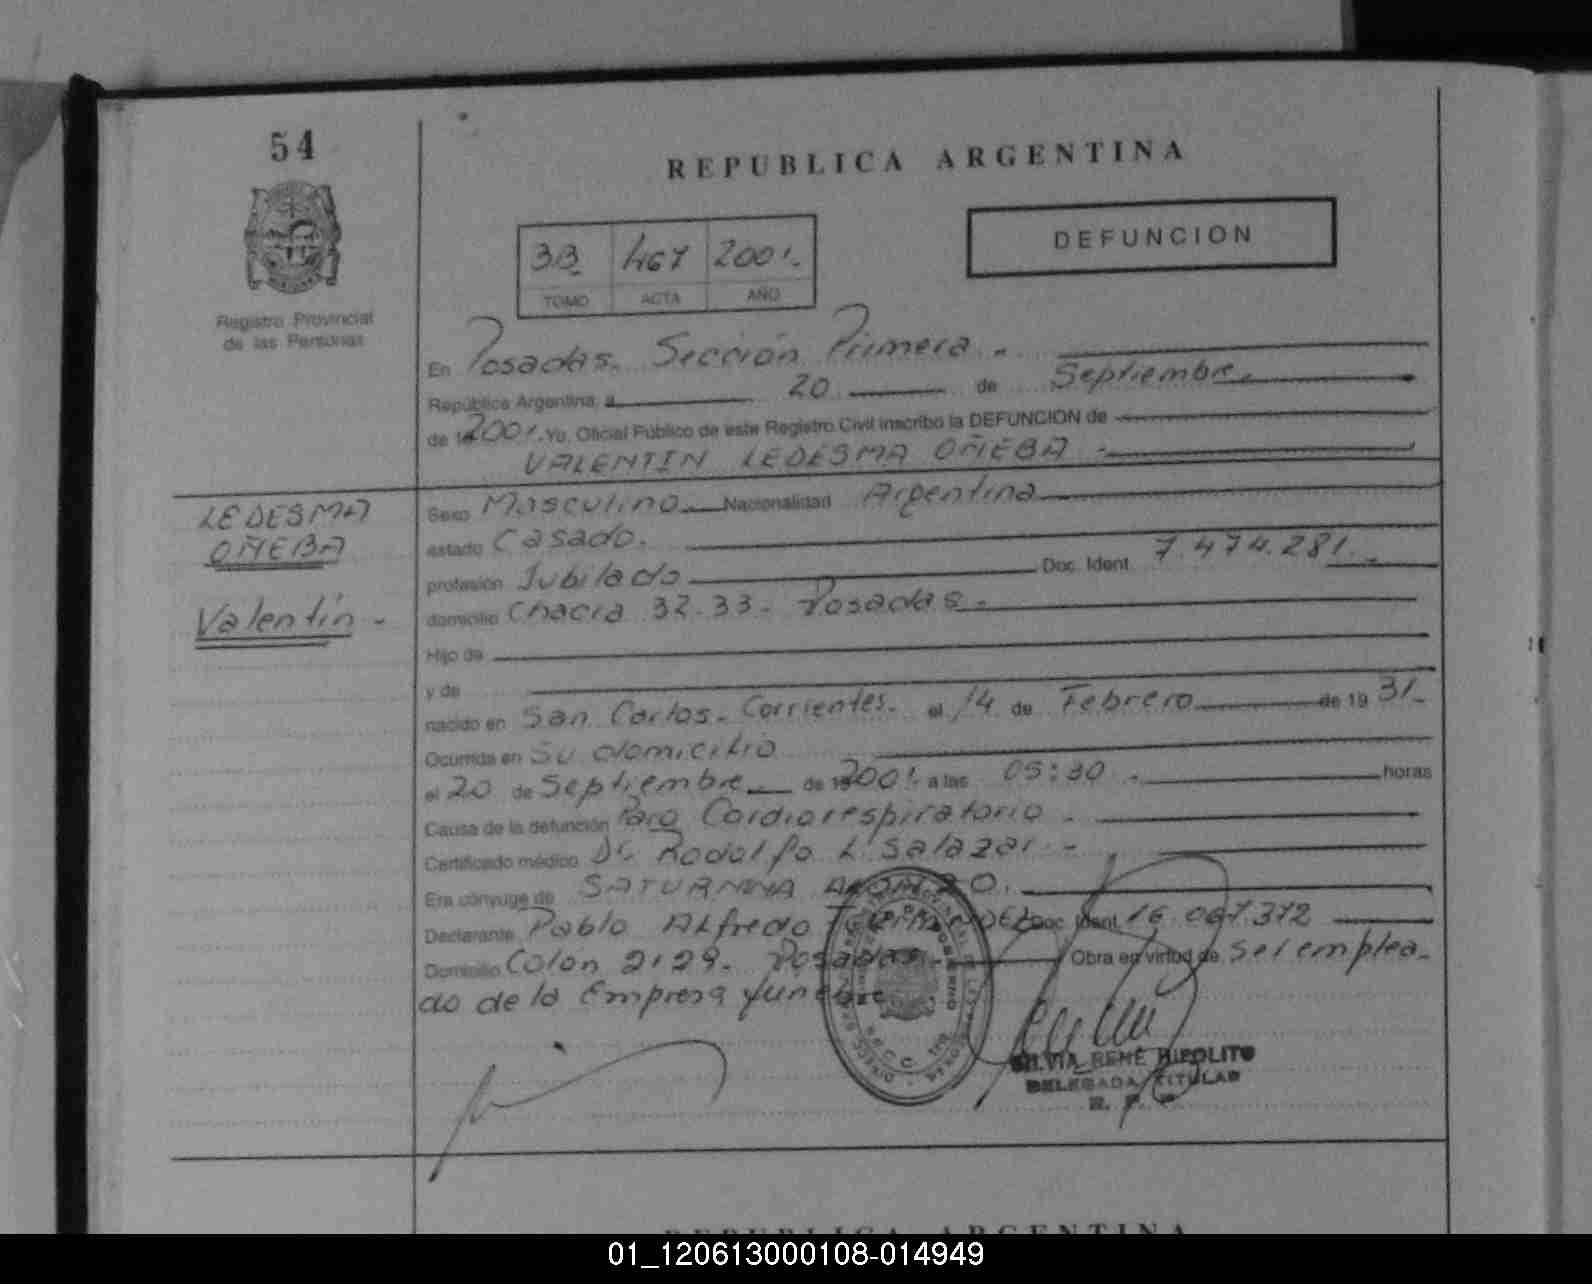 54
REPUBLICA ARGENTINA
Registro Provincial
de las Personas
3B 467 2001.-
TOMO ACTA AÑO
DEFUNCION
En Posadas. Sección Primera.-
República Argentina, a 20 de Septiembre.
de 2001. Yo, Oficial Público de este Registro Civil inscribo la DEFUNCION de
VALENTIN LEDESMA OÑEBA.-
LEDESMA
OÑEBA
Valentín.-
Sexo Masculino Nacionalidad Argentina
estado Casado.
profesión Jubilado Doc. Ident. 7.474.281.-
domicilio Chacra 32.33.- Posadas.-
Hijo de
y de
nacido en San Carlos.- Corrientes.- el 14 de Febrero de 19 31.-
Ocurrida en Su domicilio
el 20 de Septiembre de 2001. a las 05:30.- horas
Causa de la defunción Paro Cardiorespiratorio.-
Certificado médico Dr. Rodolfo L. Salazar.-
Era cónyuge de SATURNINA
Declarante Pablo Alfredo Doc. Ident. 16.067.372
Domicilio Colon 2129.- Posadas.- Obra en virtud de Ser emplea-
do de la Empresa fúnebre
SILVIA RENE HIPOLITO
DELEGADA TITULAR
R. P. P.
REPUBLICA ARGENTINA
01_120613000108-014949